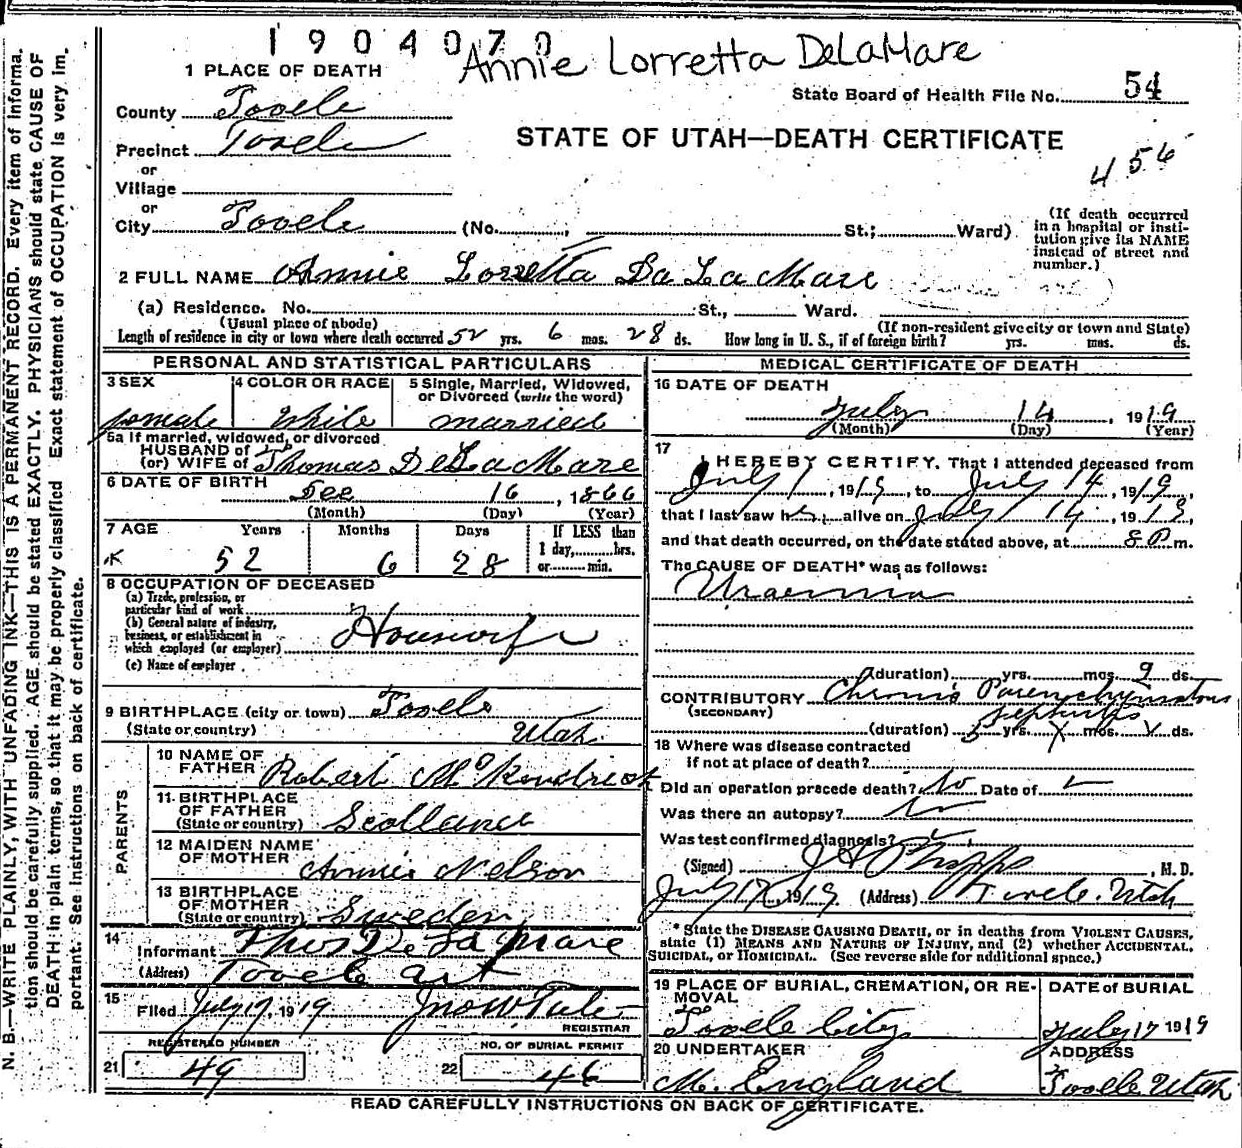 1904070
Annie Lorretta DeLaMare
1 PLACE OF DEATH
State Board of Health File No. 54
County Tooele
STATE OF UTAH—DEATH CERTIFICATE
Precinct Tooele
456
or
Village
or
City Tooele (No. , St.; Ward)
(If death occurred in a hospital or insti-
tution give its NAME instead of street and number.)
2 FULL NAME Annie Lorretta Da La Mare
(a) Residence. No. St., Ward.
(Usual place of abode) (If non-resident give city or town and State)
Length of residence in city or town where death occurred 52 yrs. 6 mos. 28 ds. How long in U. S., if of foreign birth? yrs. mos. ds.
PERSONAL AND STATISTICAL PARTICULARS
3 SEX 4 COLOR OR RACE 5 Single, Married, Widowed, or Divorced (write the word)
female White married
5a If married, widowed, or divorced
HUSBAND of
(or) WIFE of Thomas DeLaMare
6 DATE OF BIRTH Dec 16, 1866
(Month) (Day) (Year)
7 AGE Years Months Days If LESS than
1 day, hrs.
or min.
52 6 28
8 OCCUPATION OF DECEASED
(a) Trade, profession, or
particular kind of work
(b) General nature of industry,
business, or establishment in
which employed (or employer) Housewife
(c) Name of employer
9 BIRTHPLACE (city or town) Tooele
(State or country) Utah
PARENTS
10 NAME OF
FATHER Robert McKendrick
11 BIRTHPLACE
OF FATHER
(State or country) Scotland
12 MAIDEN NAME
OF MOTHER Annie Nelson
13 BIRTHPLACE
OF MOTHER
(State or country) Sweden
14 Informant Thos De La Mare
(Address) Tooele
15 Filed July 17, 1919
REGISTRAR
REGISTERED NUMBER NO. OF BURIAL PERMIT
21 49 22 46
MEDICAL CERTIFICATE OF DEATH
16 DATE OF DEATH
July 14 1919
(Month) (Day) (Year)
17
I HEREBY CERTIFY, That I attended deceased from
July 1, 1919, to July 14, 1919,
that I last saw her alive on July 14, 1919,
and that death occurred, on the date stated above, at 8 P m.
The CAUSE OF DEATH* was as follows:
Uraemia
(duration) yrs. mos. 9 ds.
CONTRIBUTORY Chronic Parenchymatous
(SECONDARY) nephritis
(duration) 5 yrs. mos. ds.
18 Where was disease contracted
if not at place of death?
Did an operation precede death? No Date of
Was there an autopsy?
Was test confirmed diagnosis?
(Signed) J A Phipps, M. D.
July 17, 1919 (Address) Tooele Utah
* State the DISEASE CAUSING DEATH, or in deaths from VIOLENT CAUSES,
state (1) MEANS AND NATURE OF INJURY, and (2) whether ACCIDENTAL,
SUICIDAL, or HOMICIDAL. (See reverse side for additional space.)
19 PLACE OF BURIAL, CREMATION, OR RE-
MOVAL DATE of BURIAL
Tooele City July 17 1919
20 UNDERTAKER ADDRESS
M. England Tooele Utah
READ CAREFULLY INSTRUCTIONS ON BACK OF CERTIFICATE.
N. B.—WRITE PLAINLY, WITH UNFADING INK—THIS IS A PERMANENT RECORD. Every item of informa-
tion should be carefully supplied. AGE should be stated EXACTLY. PHYSICIANS should state CAUSE OF
DEATH in plain terms, so that it may be properly classified. Exact statement of OCCUPATION is very im-
portant. See instructions on back of certificate.